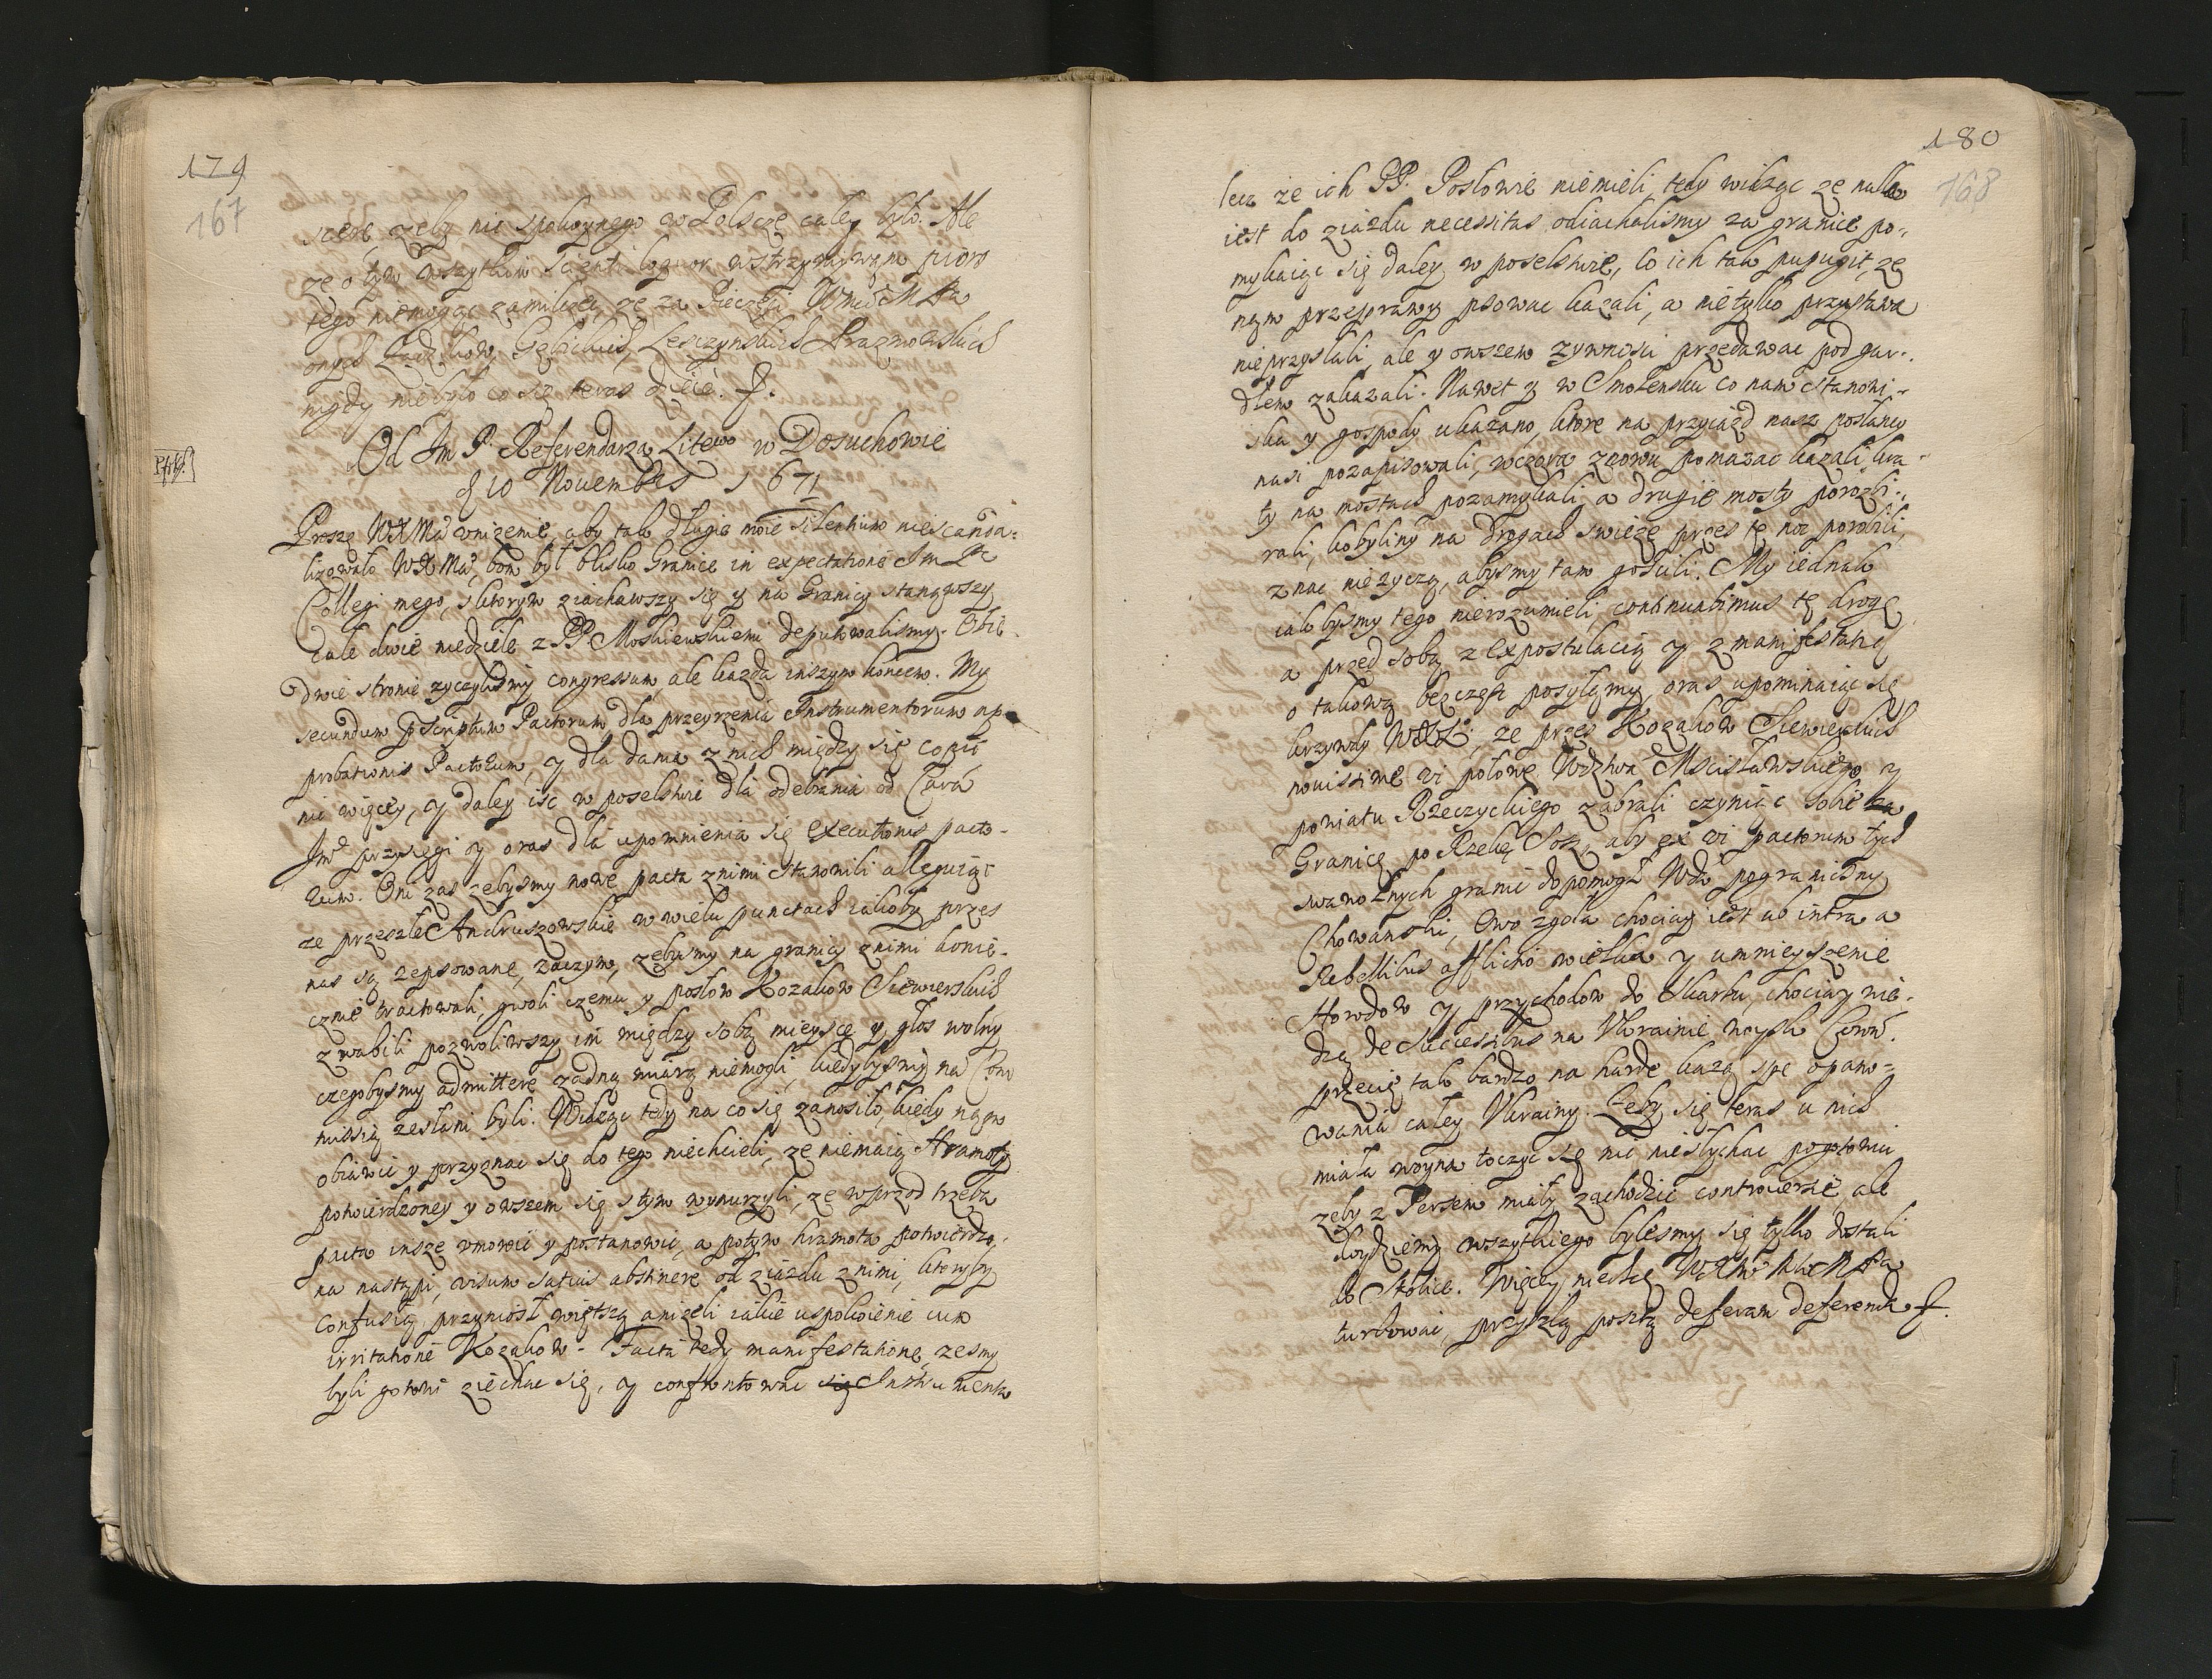 179
167
szere zeby nic spokoynego w Polszcze całey było. Ale
ze o tym wszytkim scienti loquor wstrzymywam pioro
tego niemogąc zamilczeć, ze za Pieczęci
onych Gębickich, Leszczynskich Prazmowskich
nigdy niebyło co się teras dzieie.
Od Jm P. Referendarza Litewo w Dosuchowie
d 10 Nouembris 1671
Proszę WXMci vnizenie, aby tak długie moie silentium niescanda-
lizowało WXMci, bom był blisko Granice in expectatione Jm Pa
Collegi mego, sktorym ziachawszy się y na Granicy stanąwszy
całe dwie niedziele z PP. Moskiewskiemi deputowalismy. Obie
dwie stronie zyczylismy congressum, ale kazda inszym koncem. My
secundum prescriptum Pactorum dla przeyrzenia Instrumentorum ap
probationis Pactorum, y dla dania z nich między się copii
nic więcey, y daley isc w poselstwie dla odebrania od Cara
Jmci przysięgi y oras dla upomnienia się executionis pacto-
rum. Oni zas zebysmy nowe pacta znimi stanowili alleguiąc
ze przeszłe Andruszowskie w wielu punctach iakoby przes
nas są zepsowane, zaczym, zebysmy na granicy znimi konie-
cznie tractowali, gwoli czemu y posłow Kozakow Siewierskich
zwabili pozwoliwszy im między sobą mieysce y głos wolny
czegobysmy admittere zadną miarą niemogli, kiedybysmy na Com
missią zesłani byli. Widząc tedy na co się zanosiło, kiedy nam
obiawic y przyznac się do tego niechcieli, ze niemaią Hramoty
potwierdzoney y owszem się stym wynurzyli, ze wprzod trzeba
pacta insze vmowić y postanowić, a potym hramota potwierdzo-
na nastąpi, visum satius abstinere od ziazdu znimi, ktoryby
confusią przyniosł większą anizeli iakie uspokoienie cum
irritatione Kozakow. Facta tedy manifestatione, zesmy
byli gotowi ziechac się, y confrontowac się Instrumenta
180
168
lecz ze ich PP. Posłowie niemieli, tedy widząc ze nulla
iest do ziazdu necessitas odiachalismy za granice po-
mykaiąc się daley w poselstwie, co ich tak pupugit, ze
nam przeprawy psowac kazali, a nietylko przystawa
nieprzysłali, ale y owszem zywnosci przedawac pod gar-
dłem zakazali. Nawet y w Smolensku co nam stanowi-
ska y gospody ukazano, ktore na przyiazd nasz posłancy
nasi pozapisowali, wczora znowu pomazac kazali, kra-
ty na mostach pozamykali a drugie mosty porozbi-
rali, kobyliny na drogach swieze przes tę noc porobili,
znac niezyczą, abysmy tam goscili. My iednak
iakbysmy tego nierozumieli, continuabimus tę drogę
a przed sobą z expostulacią y z manifestatią
o takową bezczesc posyłamy, oras upominaiąc się
krzywdy WXL, ze przes Kozakow Siewierskich
nouissime vi połowę Wdztwa Mscisławskiego y
powiatu Rzeczyckiego zabrali czyniąc sobie za
Granicę po Rzekę Soz, aby ex vi pactorum tych
swawolnych granic dopomogł Wda pograniczny
Chowanski, Owo zgoła chociay iest ab intra a
Rebellibus afflictio wielka y umnieyszenie
Howdow y przychodow do Skarbu, chociay wie-
dzą de successibus na Ukrainie woysk Coronn.
przecię tak bardzo na harde kazą spe opano-
wania całey Ukrainy. Zeby się teras u nich
miała woyna toczyc się nic niesłychac pogotowiu
zeby z Persem miały zachodzic controuersie, ale
doydziemy wszytkiego bylesmy się tylko dostali
do Stolice. Więcey niechcę
turbowac, przyszłą posztą deferam deferenda.